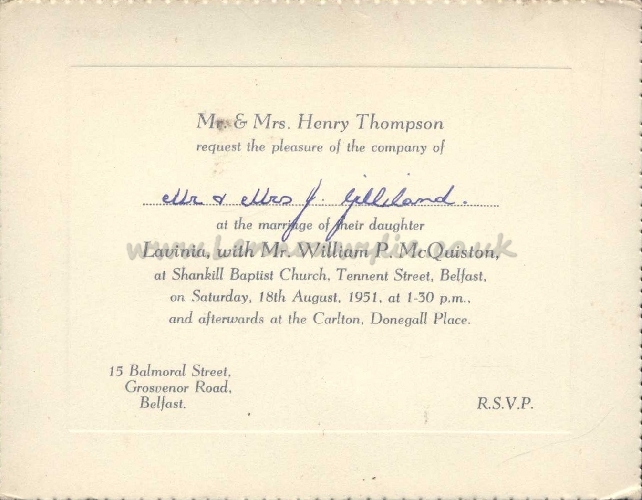 Mr. & Mrs. Henry Thompson
request the pleasure of the company of
Mr & Mrs J. Gilliland.
at the marriage of their daughter
Lavinia, with Mr. William P. McQuiston,
at Shankill Baptist Church, Tennent Street, Belfast,
on Saturday, 18th August, 1951, at 1-30 p.m.,
and afterwards at the Carlton, Donegall Place.
15 Balmoral Street,
Grosvenor Road,
Belfast.
R.S.V.P.